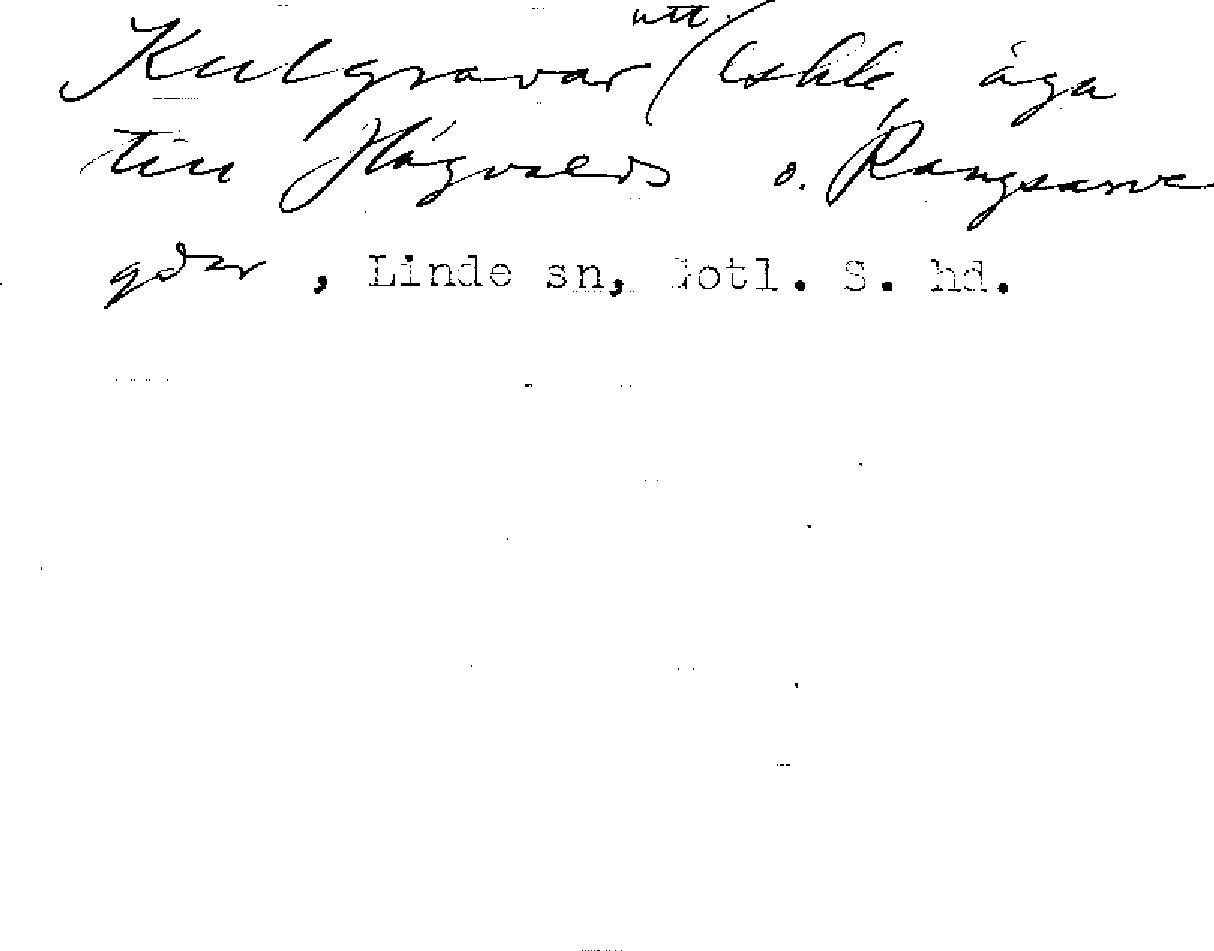 Kulgravar utt/ (skk, äga
till Hägvalds o. Rangsarve
gdar, Linde sn, Gotl. S. hd.